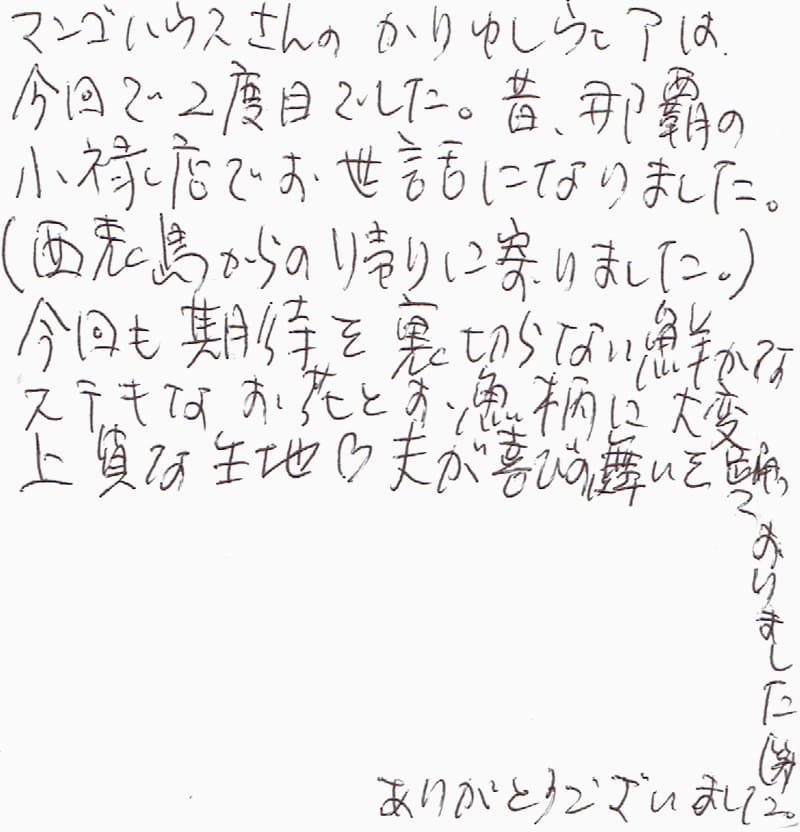 マンゴハウスさんの かりゆしウェアは、
今回で2度目でした。昔、那覇の
小禄店でお世話になりました。
(西表島からの帰りに寄りました。)
今回も期待を裏切らない鮮かな
ステキなお花とお魚柄に大変
上質な生地♡夫が喜びの舞いを踊っ
ておりました(笑)
ありがとうございました。